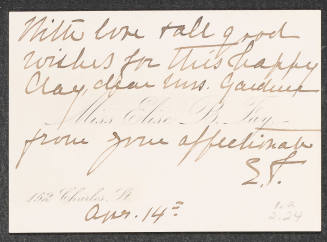 With love & all good
wishes for this happy
day, dear Mrs. Gardner
Miss Elise B. Fay
from your affectionate
E. F.
152 Charles St.
Apr. 14th
2.24